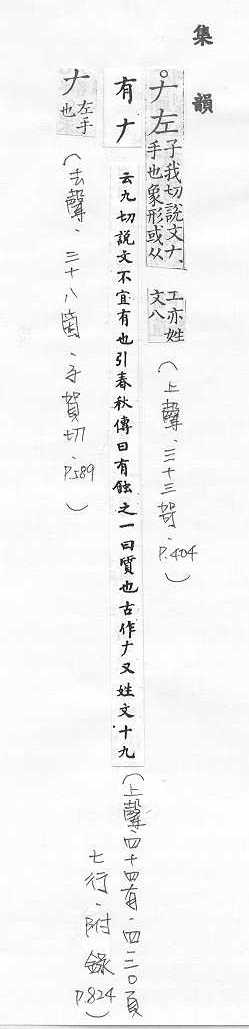 集韻
𠂇左 子我切說文𠂇手也象形或从工亦姓文八（上聲．三十三哿．P.404）
有𠂇 云九切說文不宜有也引春秋傳曰有蝕之一曰質也古作𠂇又姓文十九（上聲．四十四有．四三○頁
七行．附錄 P.824）
𠂇 左手也（去聲．三十八箇．子賀切．P.589）